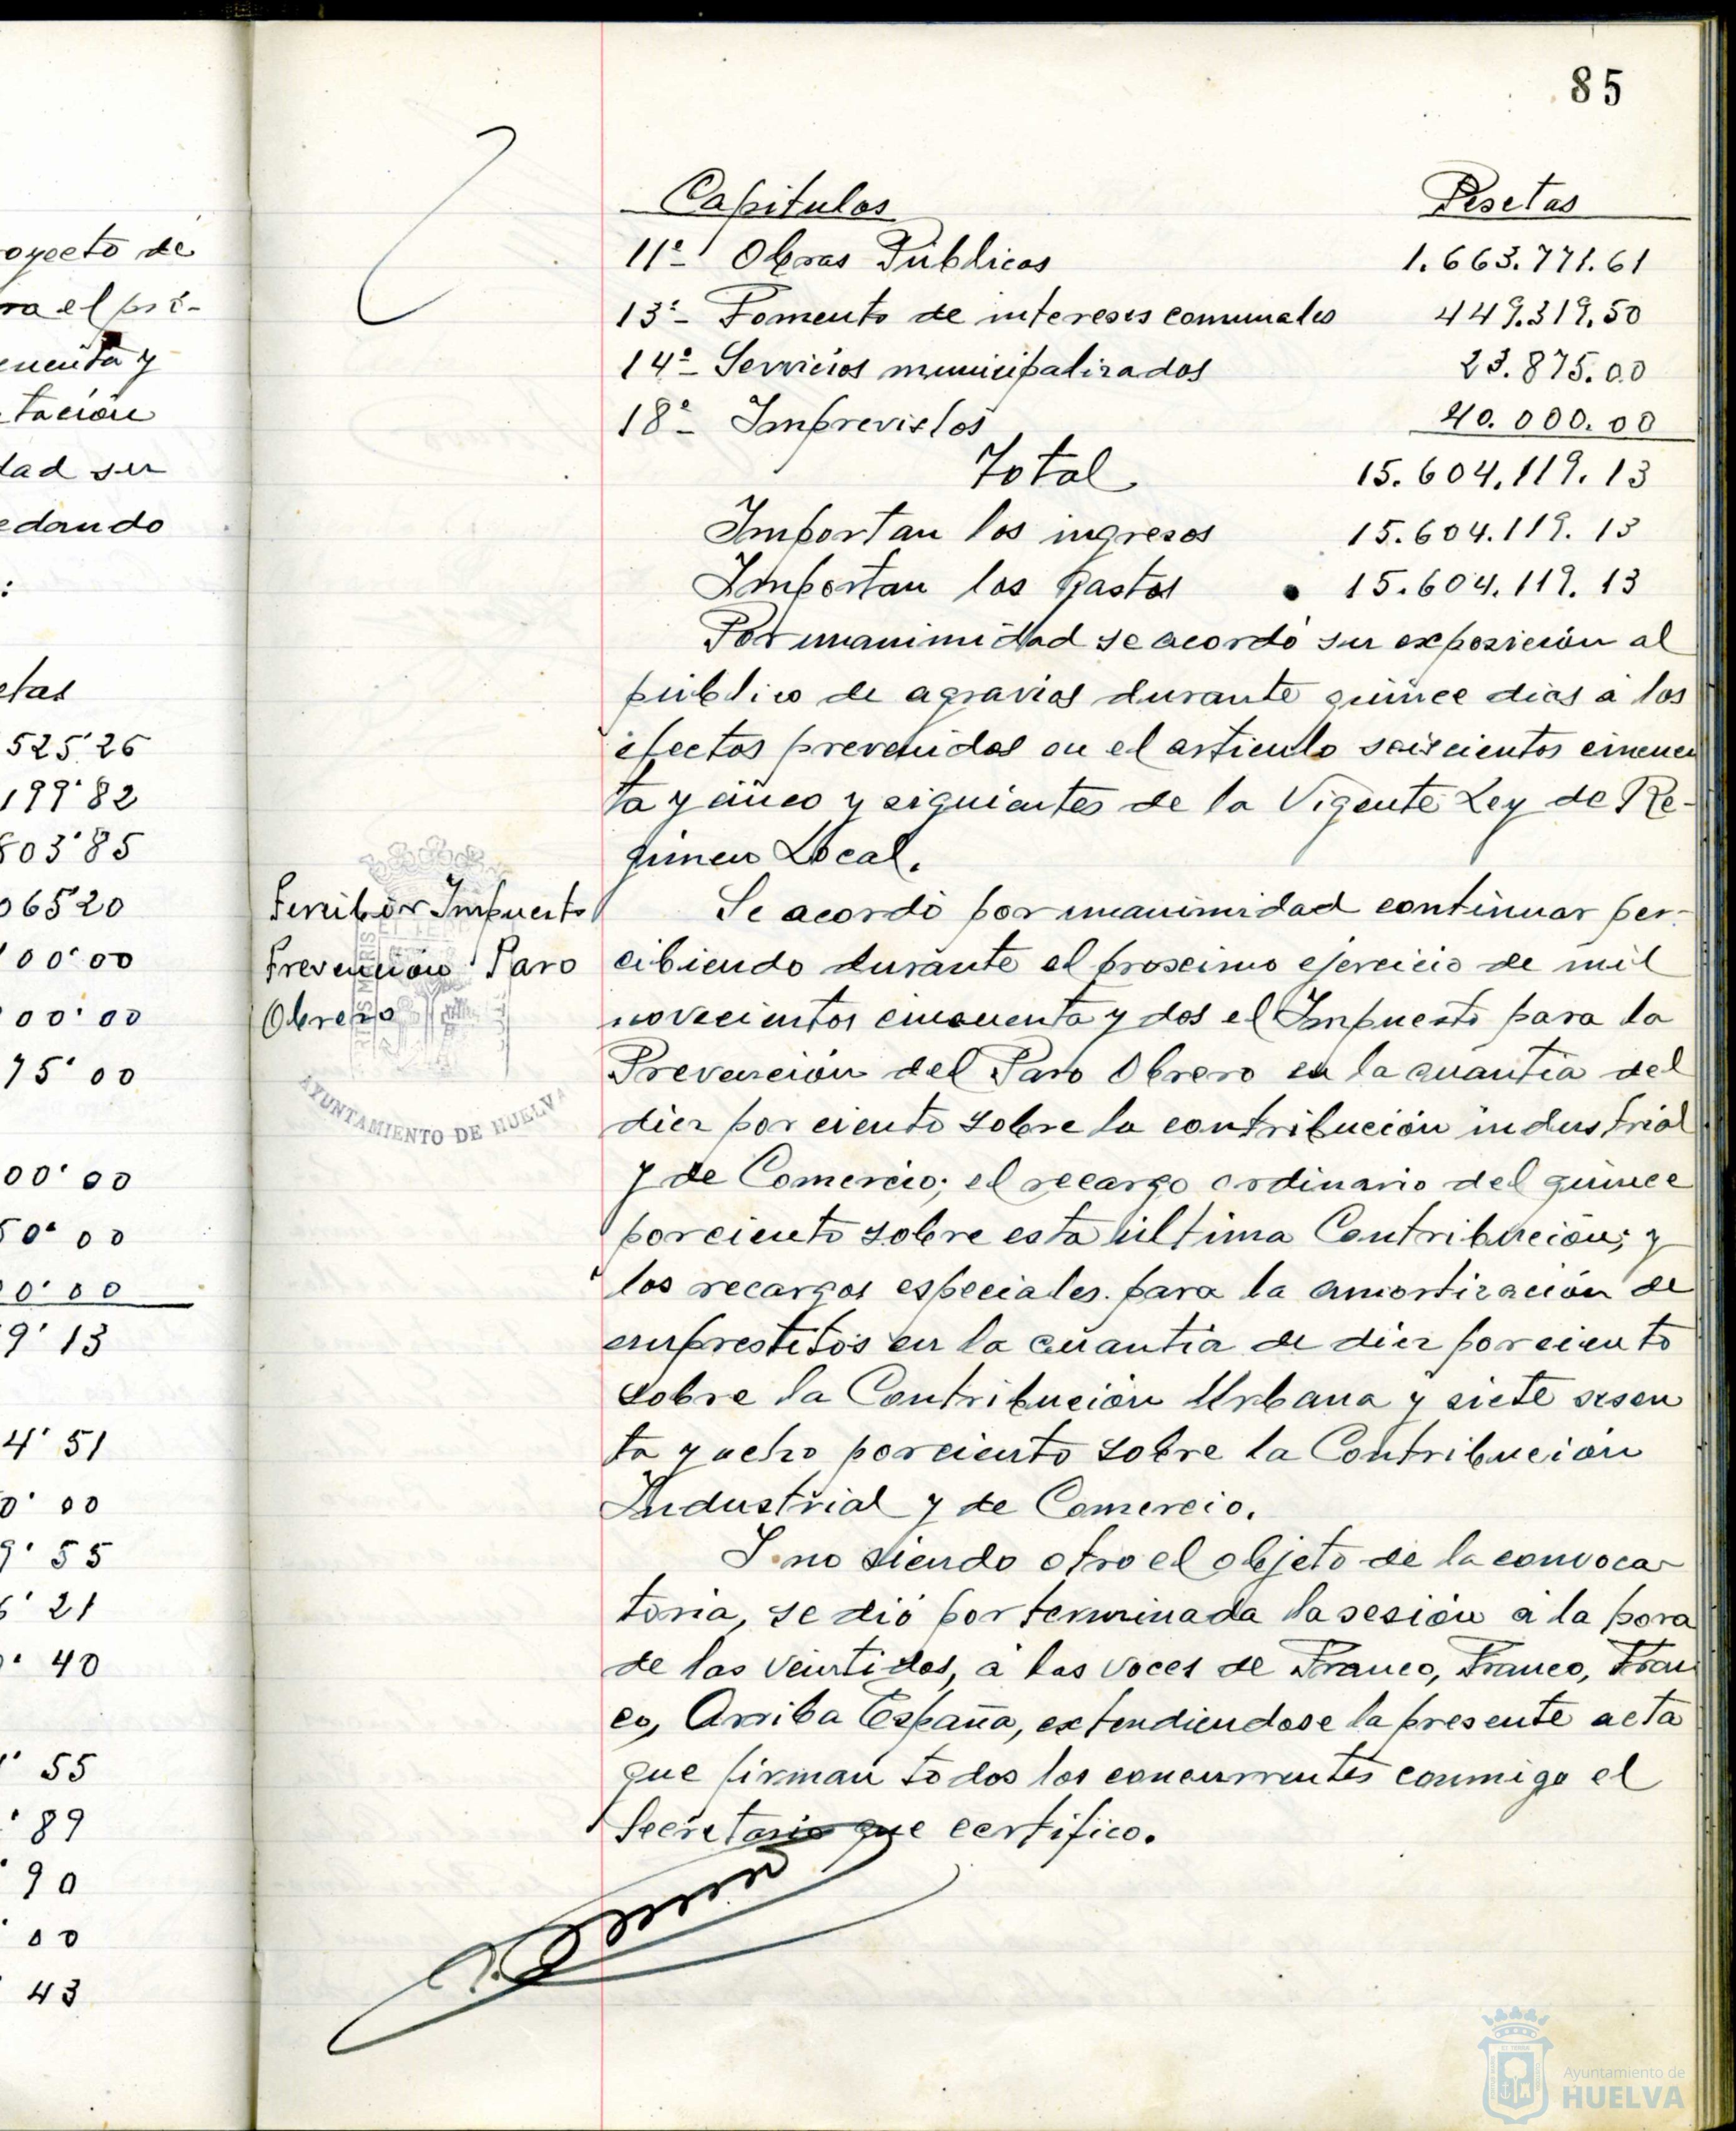 85
oyecto de
ra el pri-
cuenta y
tación
dad su
edando
:
etas
525'26
199'82
803'85
065'20
100'00
00'00
75'00
00'00
50'00
00'00
9'13
4'51
0'00
9'55
6'21
0'40
1'55
'89
'90
'00
'43
Capitulos Pesetas
11º- Obras Públicas 1.663.771.61
13º- Fomento de intereses comunales 449.319,50
14º- Servicios municipalizados 23.875.00
18º- Imprevistos 40.000.00
Total 15.604.119.13
Importan los ingresos 15.604.119.13
Importan los gastos 15.604.119.13
Por unanimidad se acordó su exposición al
público de agravios durante quince dias á los
efectos prevenidos en el articulo seiscientos cincuen
ta y cinco y siguientes de la Vigente Ley de Re-
gimen Local.
Percibir Impuesto
Prevención Paro
Obrero
AYUNTAMIENTO DE HUELVA
Se acordó por unanimidad continuar per-
cibiendo durante el proximo ejercicio de mil
novecientos cincuenta y dos el Impuesto para la
Prevención del Paro Obrero en la cuantia del
diez por ciento sobre la contribución industrial
y de Comercio; el recargo ordinario del quince
porciento sobre esta última Contribución; y
los recargos especiales para la amortización de
emprestitos en la cuantia de diez porciento
sobre la Contribución Urbana y siete sesen
ta y ocho porciento sobre la Contribución
Industrial y de Comercio.
Y no siendo otro el objeto de la convoca-
toria, se dió por terminada la sesión á la hora
de las veintidos, á las voces de Franco, Franco, Fran
co, Arriba España, extendiendose la presente acta
que firman todos los concurrentes conmigo el
Secretario que certifico.
Ayuntamiento de
HUELVA